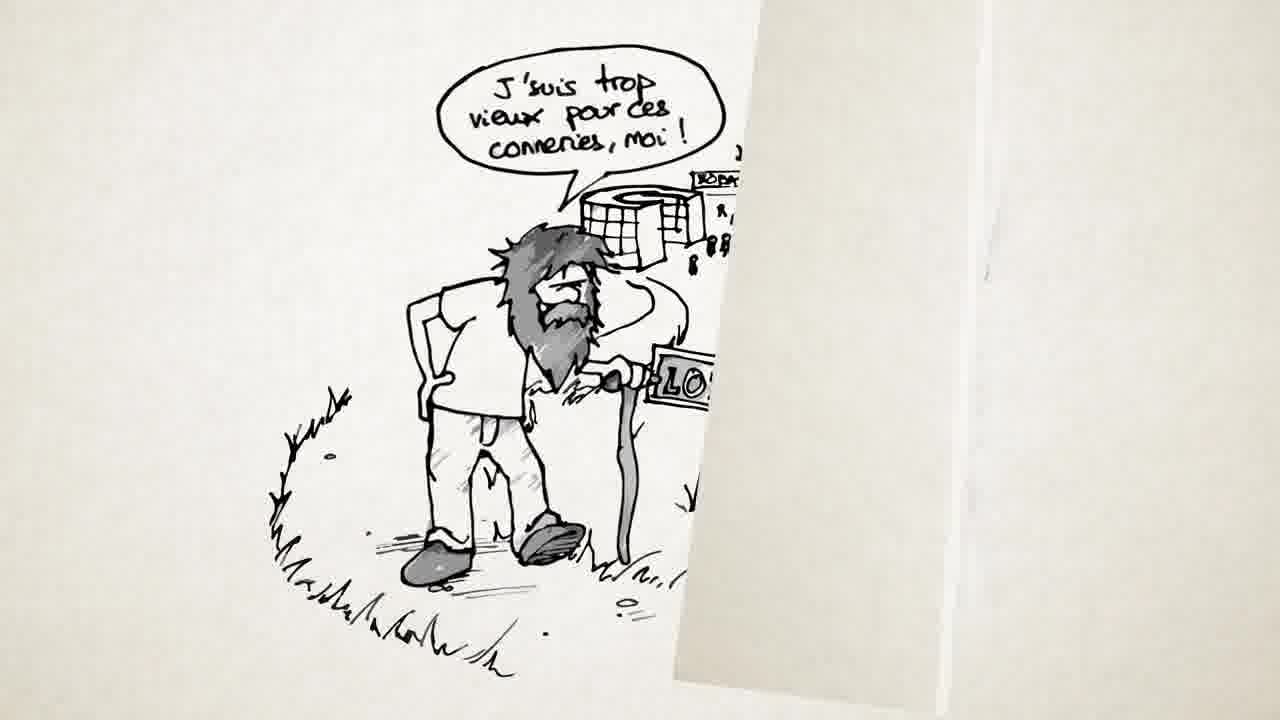 J'suis trop
vieux pour ces
conneries, moi !
LO